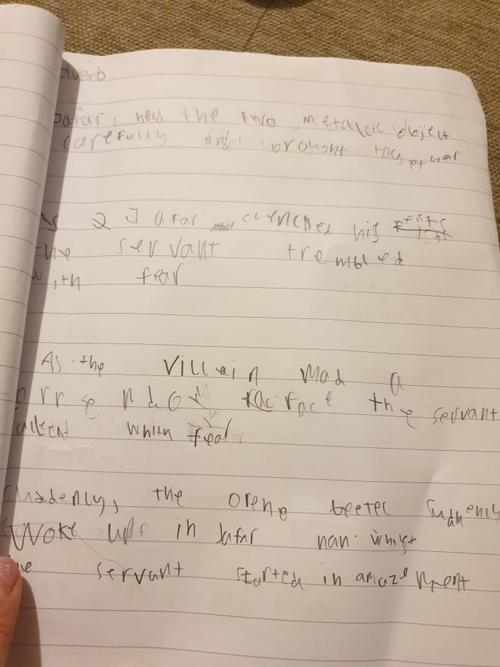 dverb
afar, held the two metallic object
carefully and brought
As 2 Jafar clenched his fists
the servant trembled
with fear
As the villain mad a
face the servant
whith fear
Suddenly, the orene beetel suddenly
Woke upe in Jafar han whilst
servant started in amazement